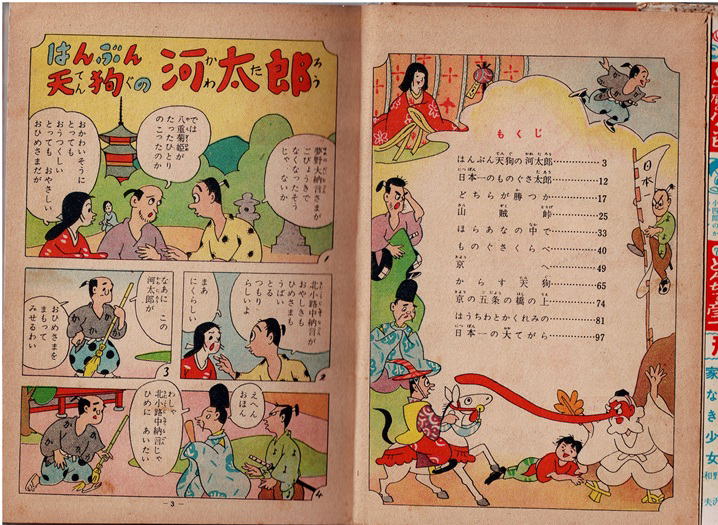 はんぶん
天狗の 河太郎
夢野大納言さまが
ごびょうきで
なくなったそう
じゃ ないか
では
八重菊姫が
たったひとり
のこったのか
おかわいそうに
とっても
おうつくしい
とっても おやさしい
おひめさまだが
1
北小路中納言が
おやしきも
ひめさまも
うばい
とる
つもり
らしいよ
まあ
にくらしい
2
なあに この
河太郎が
おひめさまを
まもって
みせるわい
3
えへん
おほん
わしゃ
北小路中納言じゃ
ひめに あいたい
4
— 3 —
もくじ
はんぶん天狗の河太郎…………3
日本一のものぐさ太郎…………12
どちらが勝つか…………17
山賊峠…………25
ほらあなの中で…………33
ものぐさくらべ…………40
京へ…………49
からす天狗…………65
京の五条の橋の上…………74
はうちわとかくれみの…………81
日本一の大てがら…………97
日本一
家なき少女